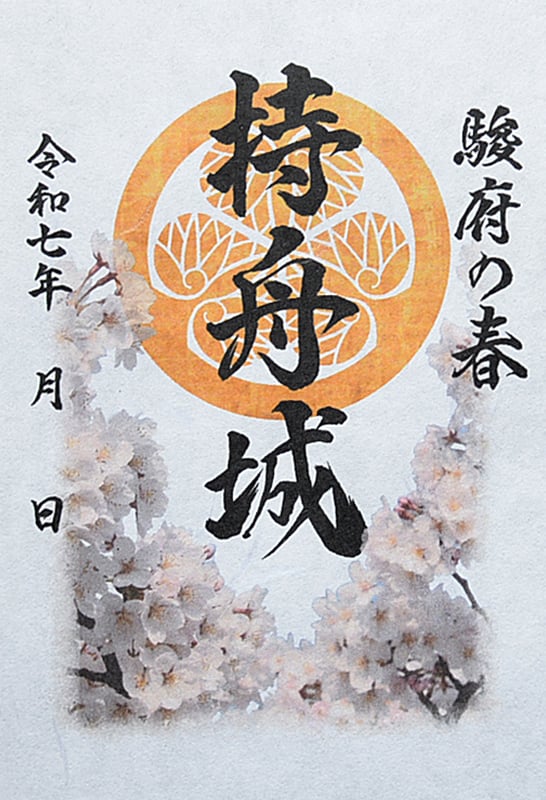 駿府の春
持舟城
令和七年 月 日